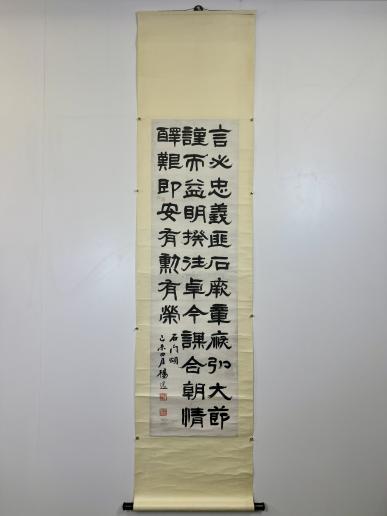 言必忠義匪石厥章恢弘大節
讜而益明揆往卓今謀合朝情
醳艱即安有勳有榮
石門頌
己未四月楊